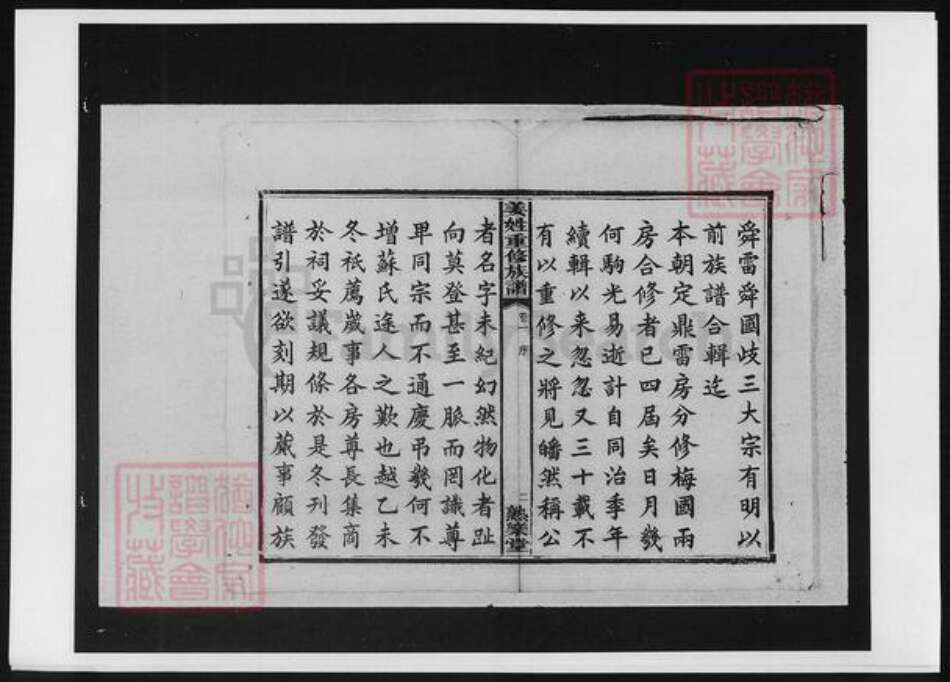 舜雷舜國岐三大宗有明以
前族譜合輯迄
本朝定鼎雷房分修梅國兩
房合修者已四屆矣日月幾
何駒光易逝計自同治季年
續輯以来忽忽又三十載不
有以重修之將見皤然稱公
姜姓重修族譜
卷一 序
二
熟筆堂
者名字未紀幻然物化者趾
向莫登甚至一脈而罔識尊
卑同宗而不通慶弔幾何不
增蘇氏途人之歎也越乙未
冬祇薦歲事各房尊長集商
於祠妥議規條於是冬刋發
譜引遂欲刻期以蕆事顧族
FamilySearch